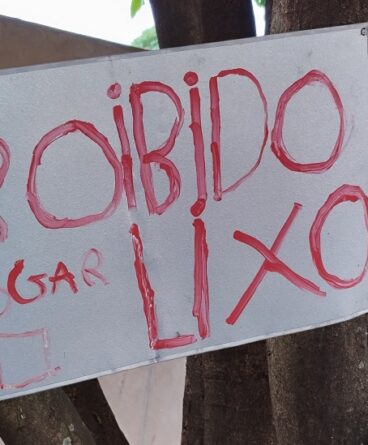 ROiBiDO
OGAR LiXO